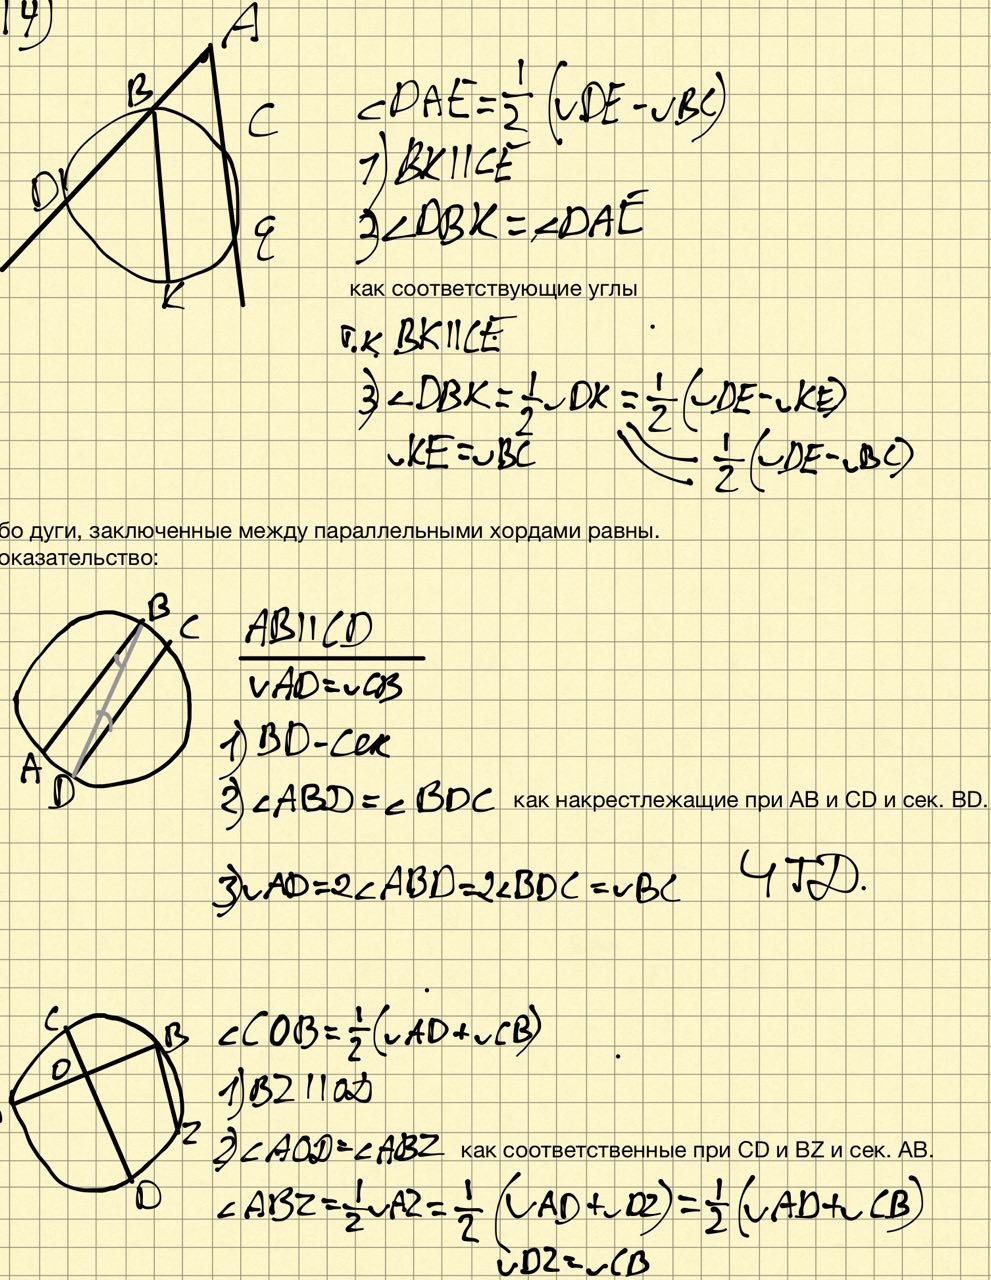 14)
A
B
C
D
E
K
∠DAE = 1/2 (◡DE - ◡BC)
1) BK || CE
2) ∠DBK = ∠DAE
как соответствующие углы
т.к BK || CE
3) ∠DBK = 1/2 ◡DK = 1/2 (◡DE - ◡KE)
◡KE = ◡BC
1/2 (◡DE - ◡BC)
бо дуги, заключенные между параллельными хордами равны.
оказательство:
B
C
A
D
AB || CD
◡AD = ◡CB
1) BD - сек
2) ∠ABD = ∠BDC как накрестлежащие при AB и CD и сек. BD.
3) ◡AD = 2∠ABD = 2∠BDC = ◡BC ЧТД.
C
B
O
Z
D
∠COB = 1/2 (◡AD + ◡CB)
1) BZ || OD
2) ∠AOD = ∠ABZ как соответственные при CD и BZ и сек. AB.
∠ABZ = 1/2 ◡AZ = 1/2 (◡AD + ◡DZ) = 1/2 (◡AD + ◡CB)
◡DZ = ◡CB